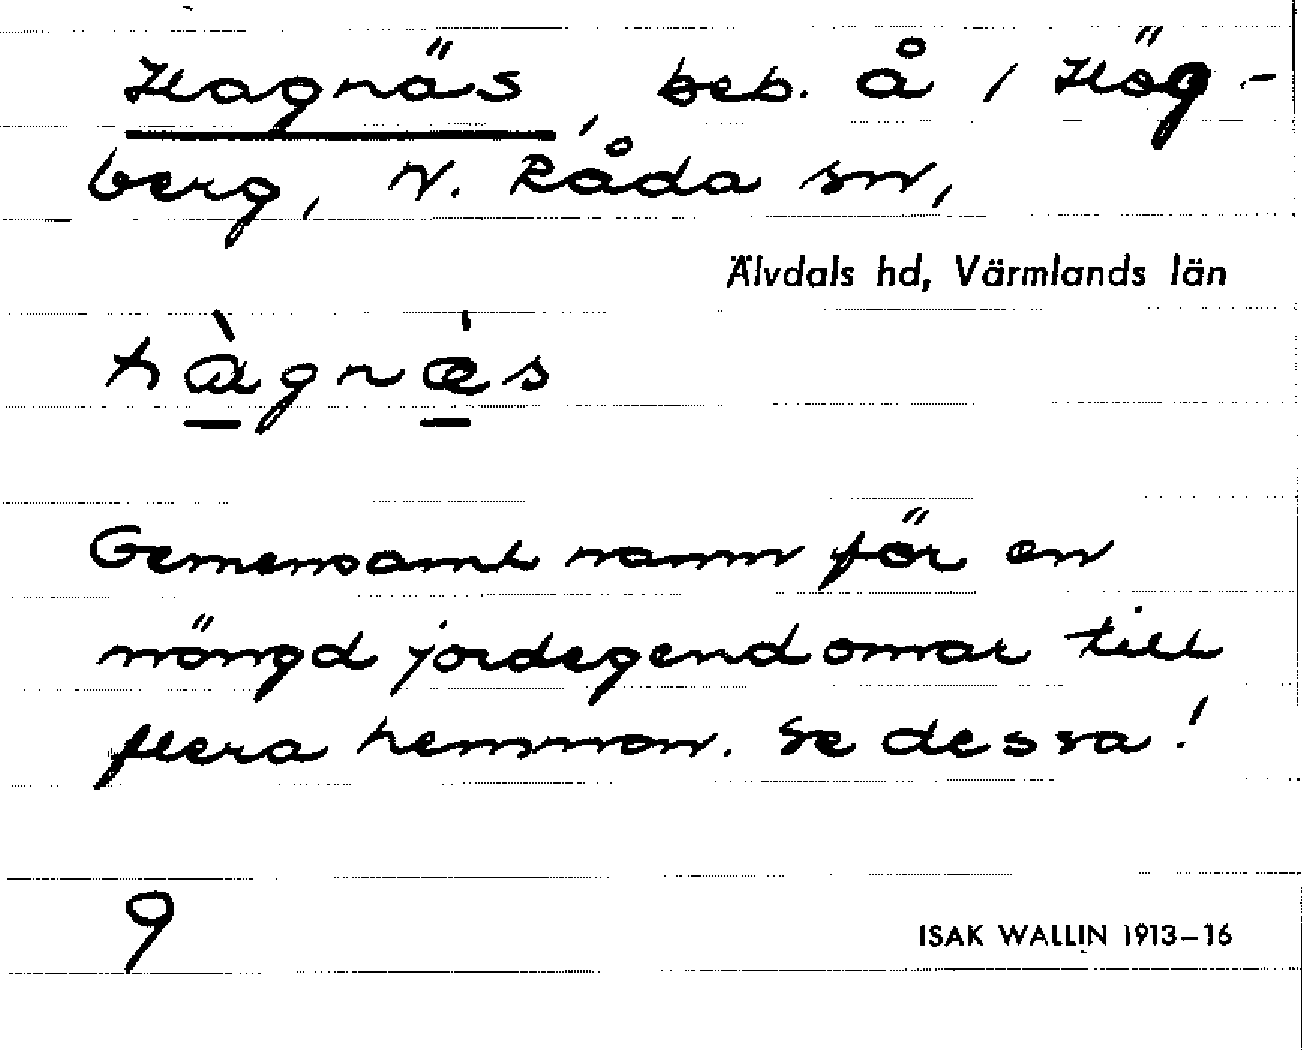 Hagnäs, beb. å / Hög-
berg, N. Råda sn,
Älvdals hd, Värmlands län
hàgnæ̀s
Gemensamt namn för en
mängd jordegendomar till
flera hemman. Se dessa!
9
ISAK WALLIN 1913–16